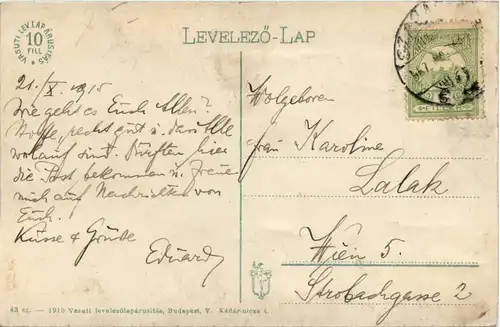 VASUTI LEV. LAP ÁRUSITÁS
10
FILL
LEVELEZŐ-LAP
21./X. 1915
Wie geht es Euch Allen?
Hoffe, recht gut u. dass Alle
wolauf sind. Dürften hier
die Post bekommen u. freue
mich auf Nachrichten von
Euch.
Küsse & Grüsse
Eduard
Wolgeboren
Frau Karoline
Lalak
Wien 5.
Strobachgasse 2
43 sz. — 1910 Vasuti levelezőlapárusitás, Budapest, V. Kádár-utcza 4.